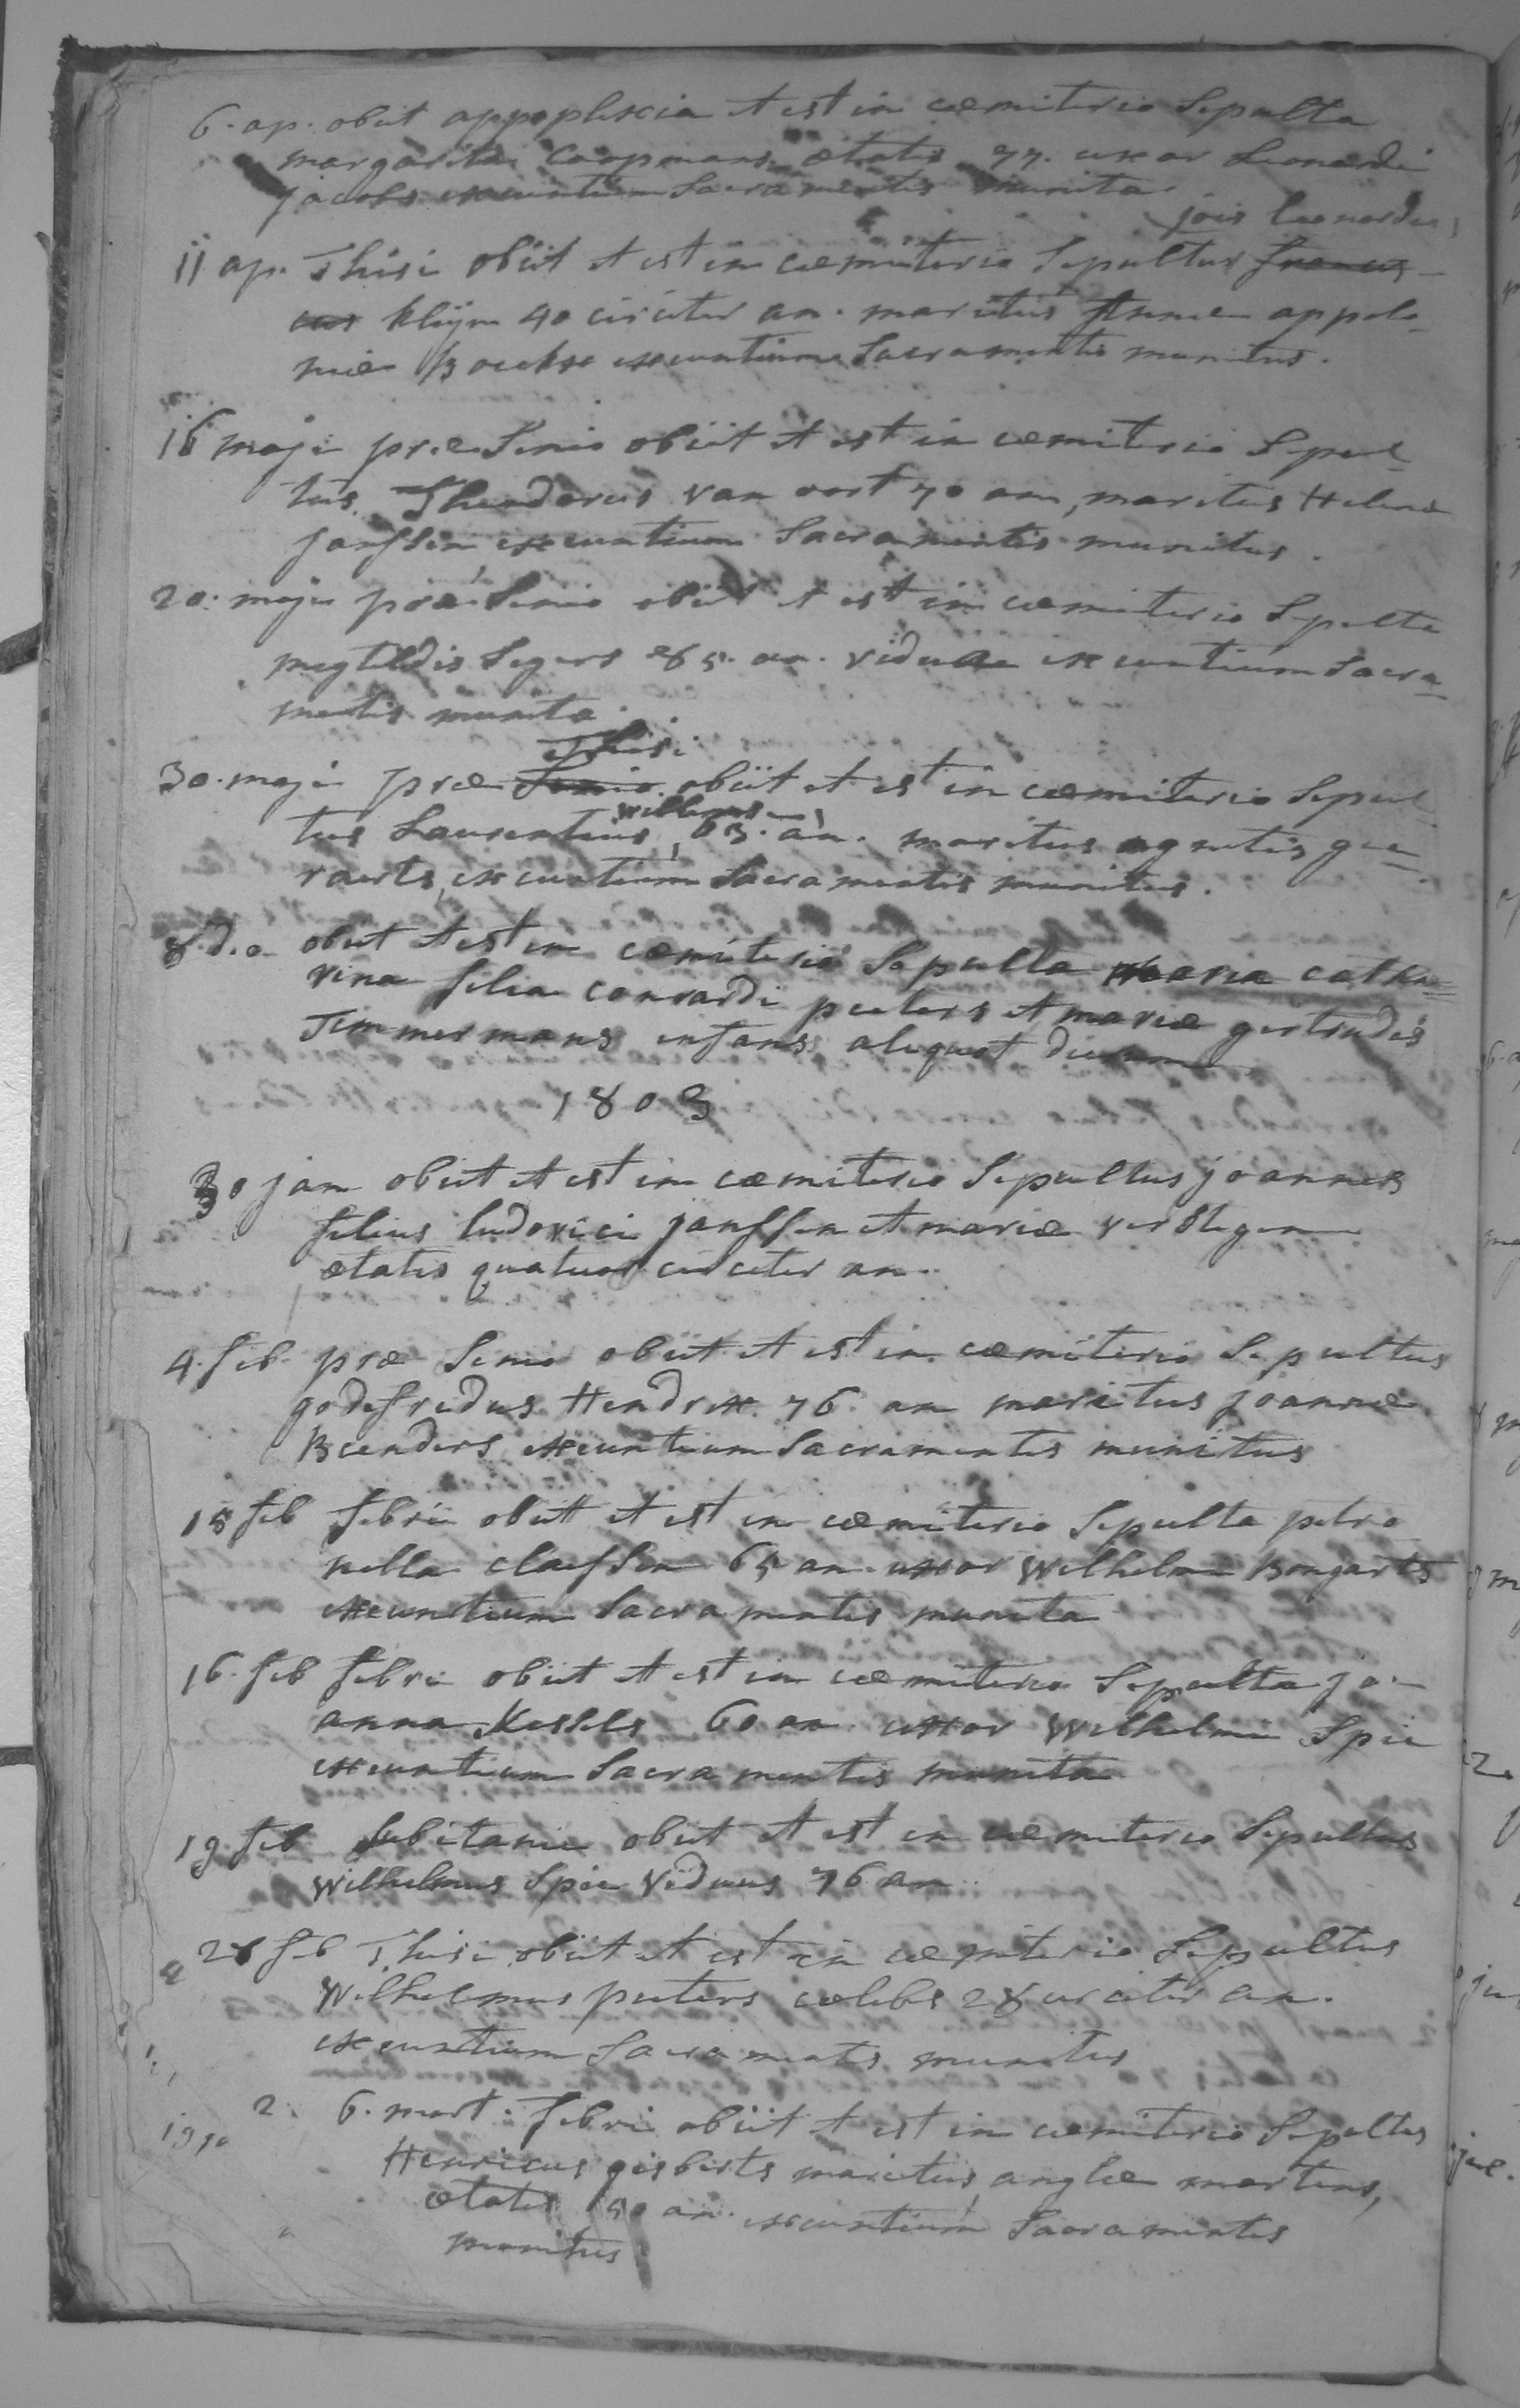 6. ap. obiit appoplexia et est in coemiterio Sepulta
margarita Coopmans ætatis 77. uxor Leonardi
jacobs exeuntium Sacramentis munita.
jois leonardus
11 ap. Thisi obiit et est in coemiterio Sepultus francis-
cus kleijn 40 circiter an. maritus Annæ appolo
niæ Boekx exeuntium Sacramentis munitus.
16 maji præ Senio obiit et est in coemiterio Sepul
tus Theodorus van oort 70 an, maritus Helenæ
janssen exeuntium Sacramentis munitus.
20. maji præ Senio obiit et est in coemiterio Sepulta
megtildis Segers 85. an. vidua exeuntium Sacra
mentis munita.
Thisi
30. maji præ Senio obiit et est in coemiterio Sepul
willems
tus Laurentius 63. an. maritus agnetis gee
raerts exeuntium Sacramentis munitus.
8. d.o obiit et est in coemiterio Sepulta maria catha=
rina filia conrardi peeters et mariæ gertrudis
Timmermans infans aliquot dierum
1803
30 jan obiit et est in coemiterio Sepultus joannes
filius ludovici janssen et mariæ verstegen
ætatis quatuor circiter an.
4. feb. præ Senio obiit et est in coemiterio Sepultus
godefridus Hendrix 76 an maritus joannæ
Beenders exeuntium Sacramentis munitus
15 feb febri obiit et est in coemiterio Sepulta petro
nella claessen 65 an. uxor Wilhelmi Bongarts
exeuntium Sacramentis munita
16. feb febri obiit et est in coemiterio Sepulta jo-
anna Kessels 60 an. uxor Wilhelmi Spee
exeuntium Sacramentis munita
19 feb Subitanie obiit et est in coemiterio Sepultus
Wilhelmus Spee viduus 76 an
28 feb Thisi obiit et est in coemiterio Sepultus
Wilhelmus peeters celebs 28 circiter an.
exeuntium Sacramentis munitus
2. 6. mart. febri obiit et est in coemiterio Sepultus
Henricus gisberts maritus anglæ martens,
ætatis 50 an. exeuntium Sacramentis
munitus